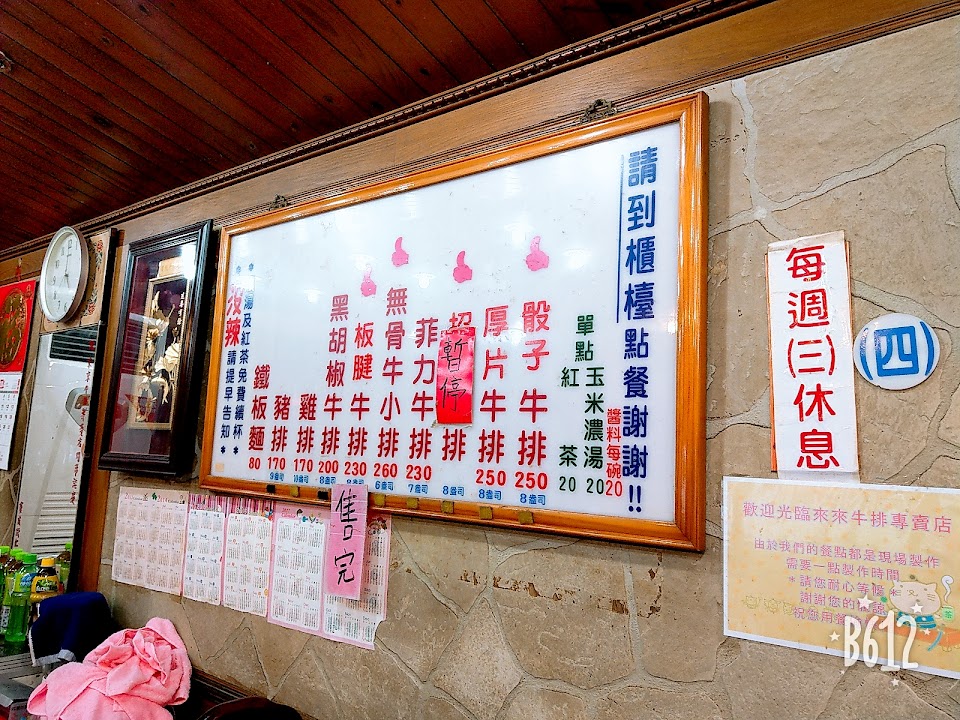 請到櫃檯點餐謝謝!!
醬料每碗20
單點玉米濃湯 20
紅茶 20
骰子牛排 250 8盎司
厚片牛排 250 8盎司
排 8盎司
暫停
菲力牛排 230 7盎司
無骨牛小排 260 6盎司
板腱牛排 230 8盎司
黑胡椒牛排 200 8盎司
雞排 170
豬排 170 9盎司
鐵板麵 80
*湯及紅茶免費續杯*
*沒辣請提早告知*
售完
每週(三)休息
(四)
歡迎光臨來來牛排專賣店
由於我們的餐點都是現場製作
需要一點製作時間
*請您耐心等候
謝謝您的
祝您用
B612